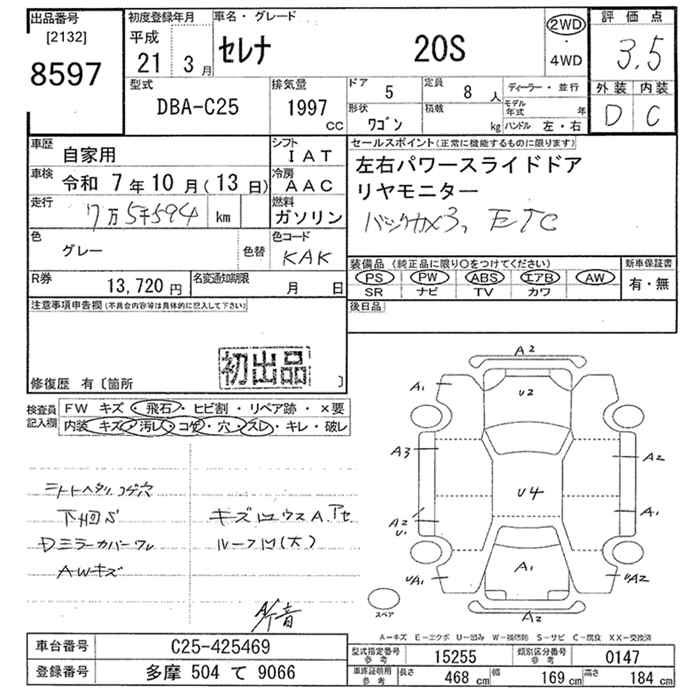 出品番号
[2132]
8597
初度登録年月
平成
21 3 月
車名・グレード
セレナ 20S
2WD
・
4WD
評価点
3.5
外装 内装
D C
型式
DBA-C25
排気量
1997
cc
ドア 5
定員 8 人
形状 ワゴン
積載 kg
ディーラー・並行
モデル年式 年
ハンドル 左・右
車歴 自家用
車検 令和 7年10月(13日)
走行 7万5千594 km
色 グレー 色替
シフト IAT
冷房 AAC
燃料 ガソリン
色コード KAK
R券 13,720 円
名変通知期限 月 日
セールスポイント(正常に機能するものに限ります)
左右パワースライドドア
リヤモニター
バックカメラ、ETC
装備品(純正品に限り○をつけてください)
PS PW ABS エアB AW
SR ナビ TV カワ
新車保証書
有・無
後日品
注意事項申告欄(不具合内容等は具体的に記入して下さい)
初出品
修復歴 有〔箇所 〕
検査員記入欄
FW キズ・飛石・ヒビ割・リペア跡・×要
内装・キズ・汚レ・コゲ・穴・スレ・キレ・破レ
シートヘタリ コゲ穴
下回S
Dミラーカバーワレ
AWキズ
ルーフ凹(大)
A2
A1
U2
A3
A2
U4
A2
U1
A1
UA1
A1
UA2
A2
スペア
A-キズ E-エクボ U-凹み W-補修跡 S-サビ C-腐食 XX-交換済
車台番号 C25-425469
登録番号 多摩 504 て 9066
型式指定番号 参考 15255
類別区分番号 参考 0147
車庫証明用 参考 長さ 468 cm 幅 169 cm 高さ 184 cm